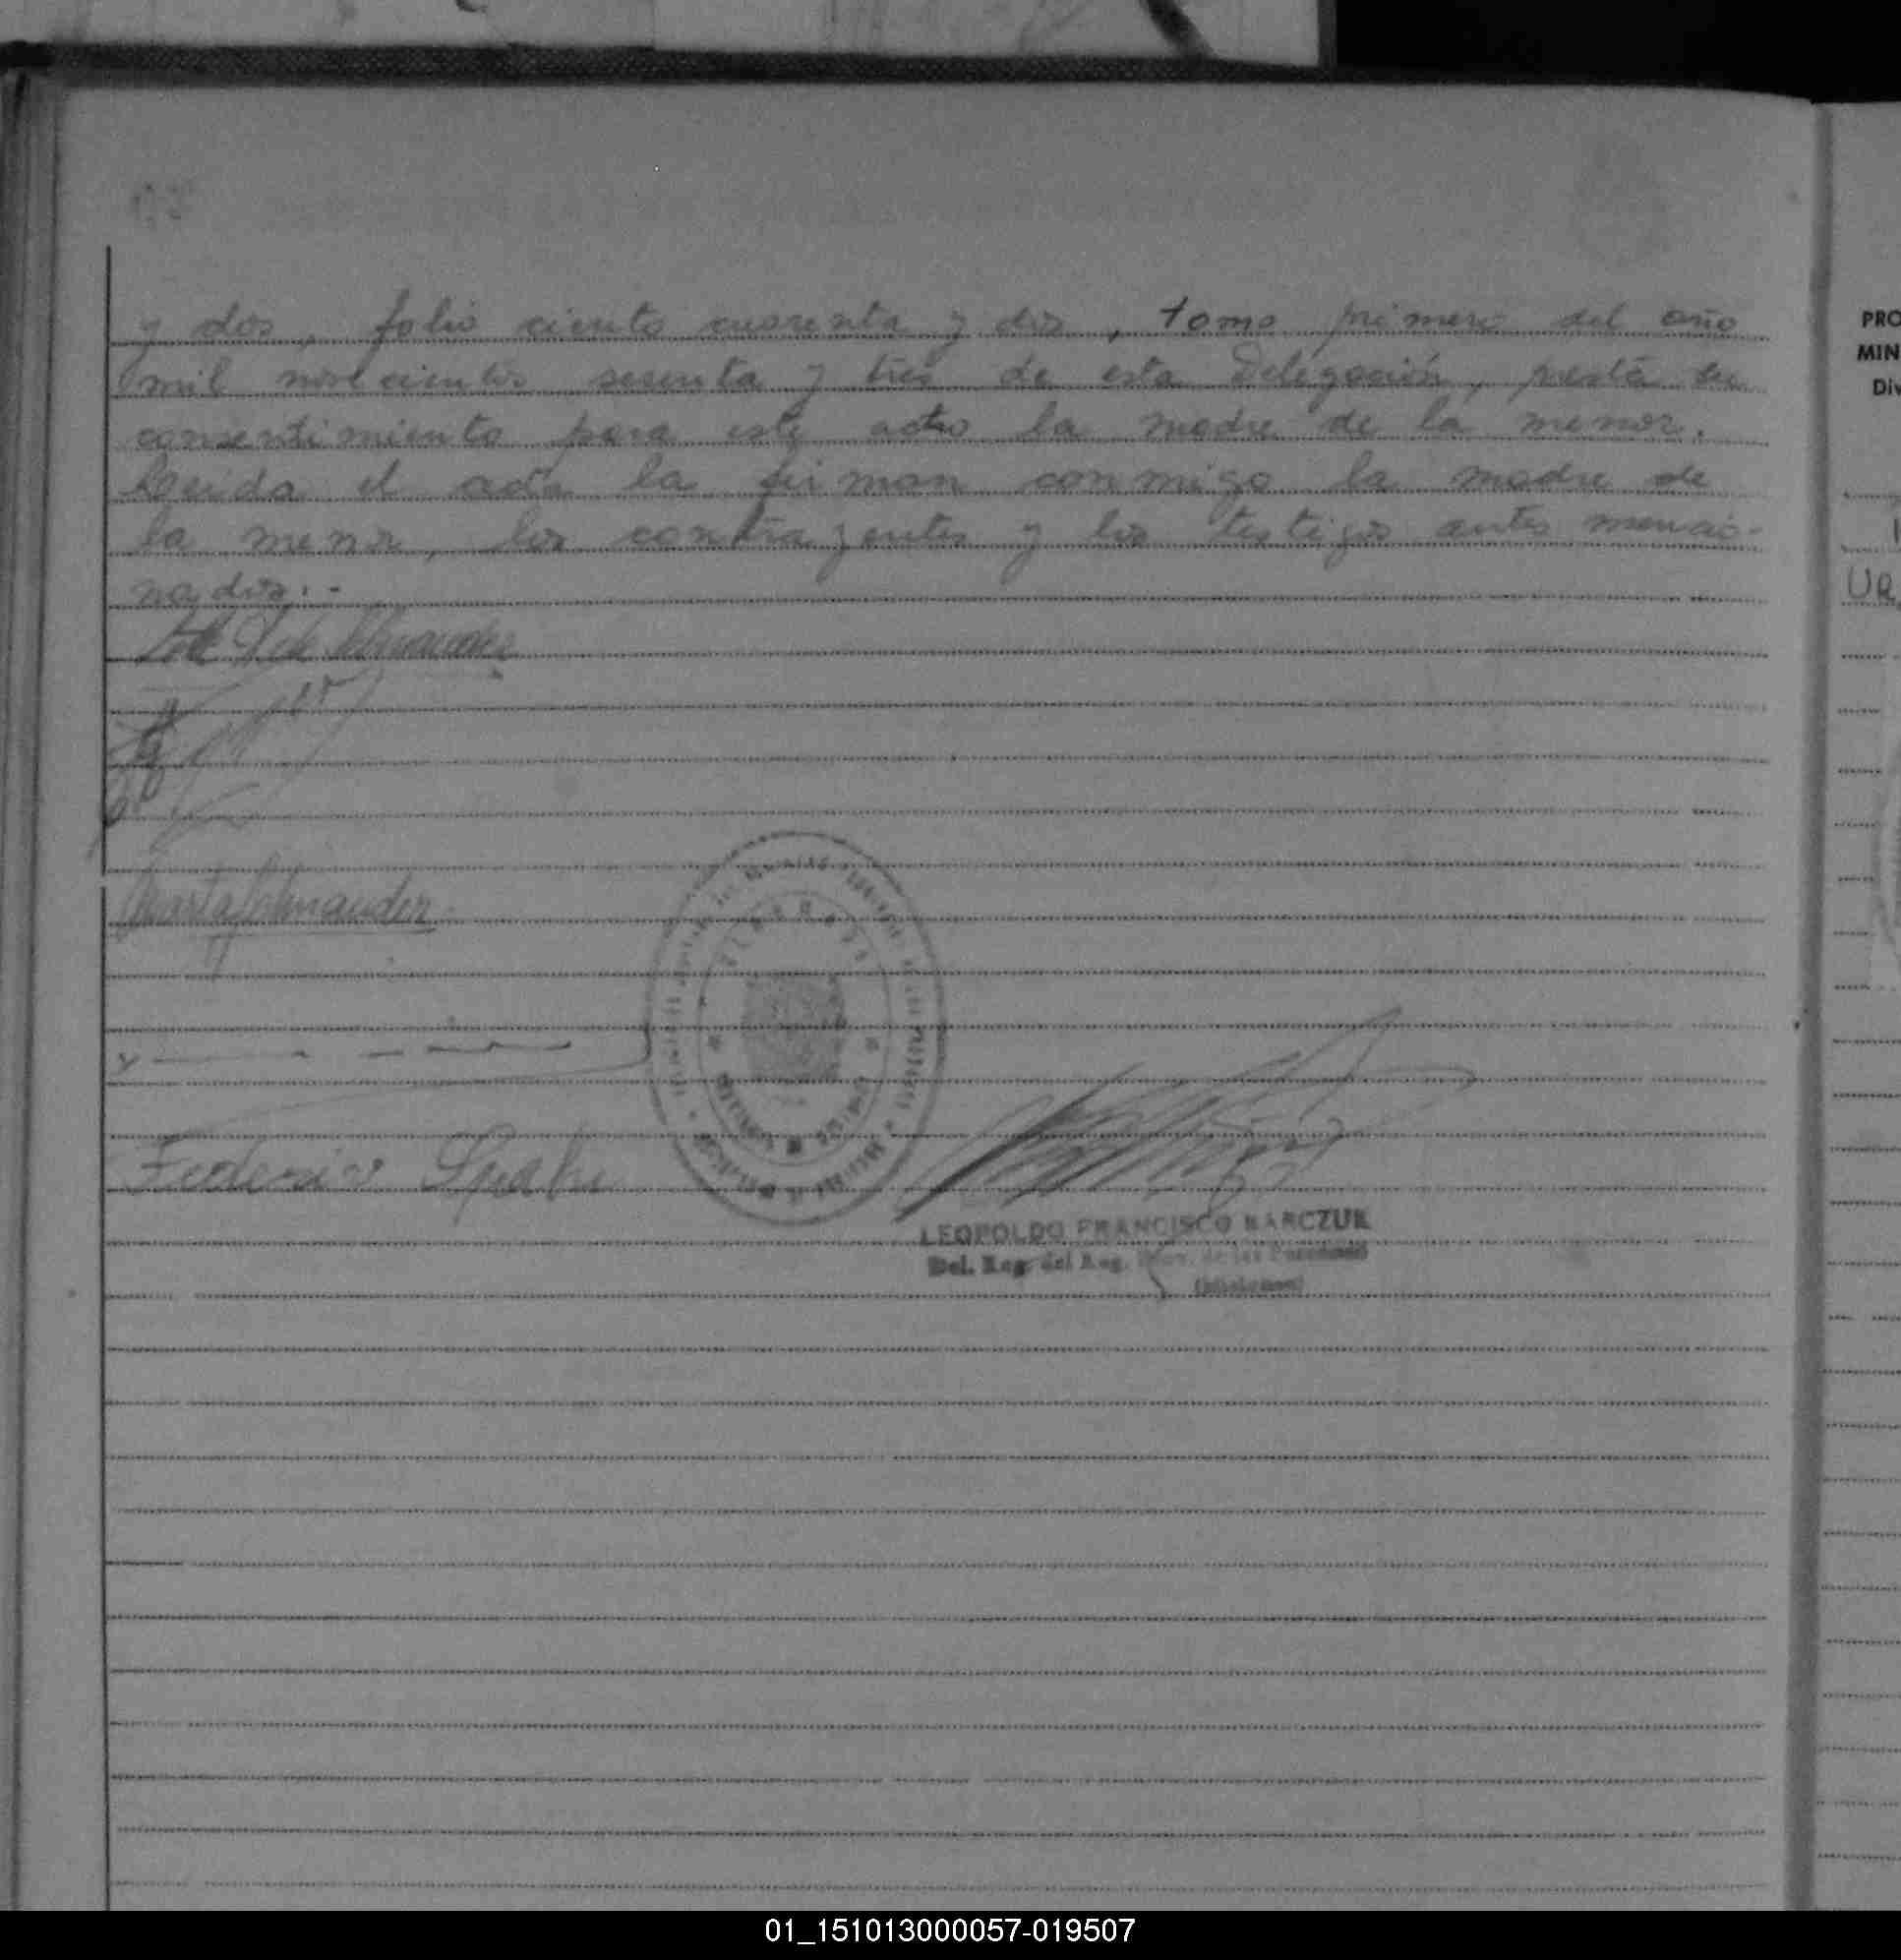 y dos, folio ciento cuarenta y dos, tomo primero del año
mil novecientos sesenta y tres de esta Delegación, presta su
consentimiento para este acto la madre de la menor.
Leida el acta la firman conmigo la madre de
la menor, los contrayentes y los testigos antes mencio-
nados.-
Federico Spahn
LEOPOLDO FRANCISCO BARCZUK
Del. Reg. del Reg. de las Personas
(Misiones)
PRO
MIN
Div
UR
01_151013000057-019507